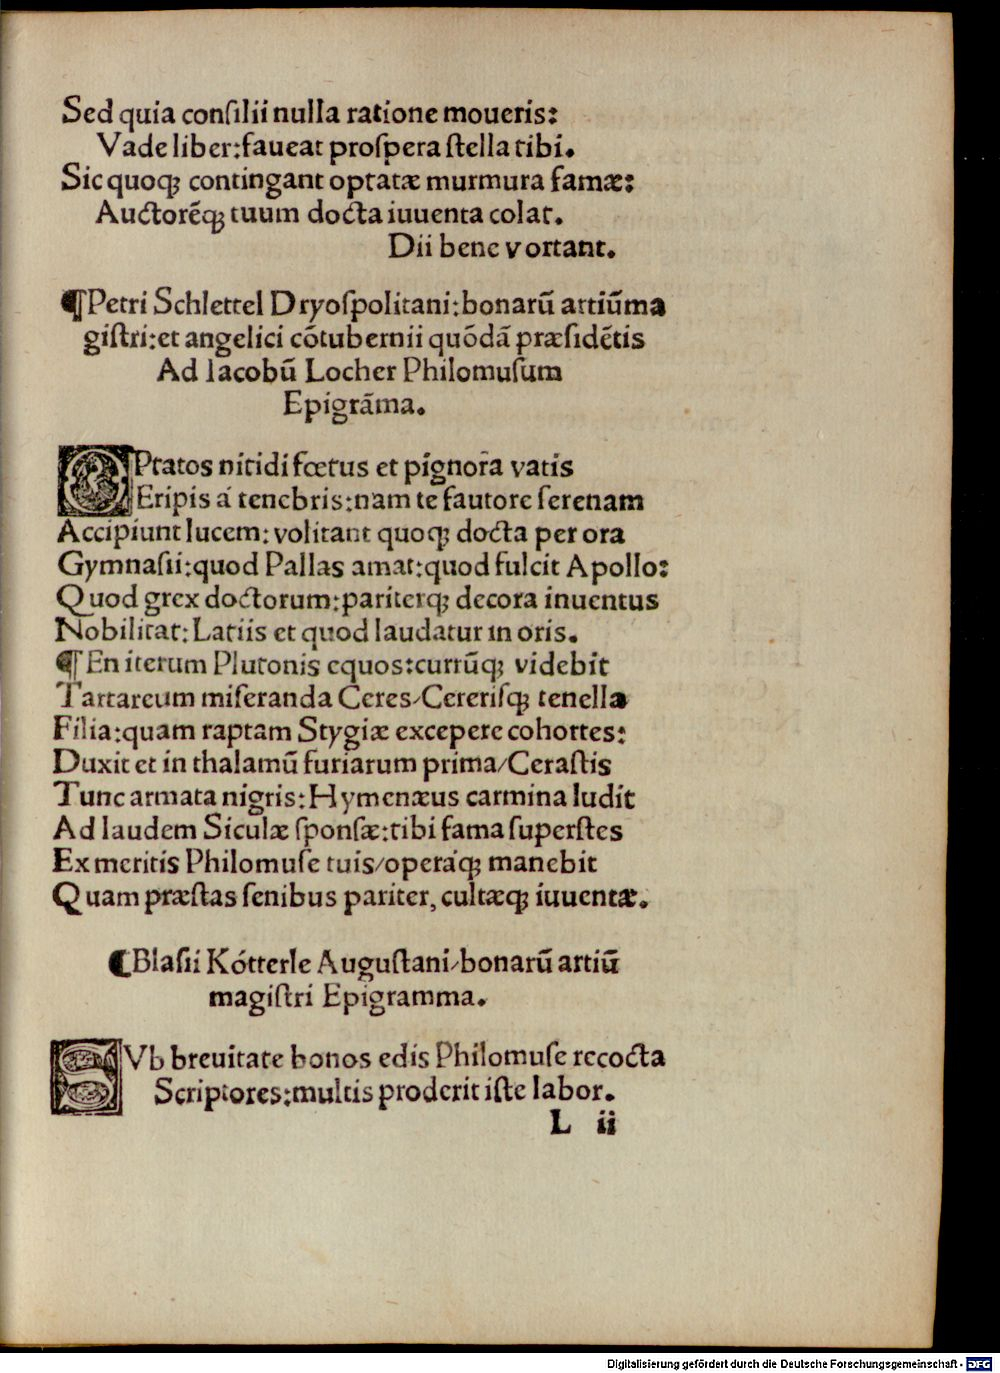 Sed quia conſilii nulla ratione moueris:
Vade liber:faueat proſpera ſtella tibi.
Sic quoqꝫ contingant optatæ murmura famæ:
Auctorēqꝫ tuum docta iuuenta colat.
Dii bene vortant.
¶Petri Schlettel Dryoſpolitani:bonarū artiūma
giſtri:et angelici cōtubernii quōdā præſidētis
Ad Iacobū Locher Philomuſum
Epigrāma.
OPtatos nitidi fœtus et pignora vatis
Eripis á tenebris:nam te fautore ſerenam
Accipiunt lucem: volitant quoqꝫ docta per ora
Gymnaſii:quod Pallas amat:quod fulcit Apollo:
Quod grex doctorum:pariterqꝫ decora inuentus
Nobilitat: Latiis et quod laudatur in oris.
¶ En iterum Plutonis equos:currūqꝫ videbit
Tartareum miſeranda Ceres/Cereriſqꝫ tenella
Filia:quam raptam Stygiæ excepere cohortes:
Duxit et in thalamū furiarum prima/Ceraſtis
Tunc armata nigris:Hymenæus carmina ludit
Ad laudem Siculæ ſponſæ:tibi fama ſuperſtes
Ex meritis Philomuſe tuis/operáqꝫ manebit
Quam præſtas ſenibus pariter, cultæqꝫ iuuentæ.
¶Blaſii Kótterle Auguſtani/bonarū artiū
magiſtri Epigramma.
SVb breuitate bonos edis Philomuſe recocta
Scriptores:multis proderit iſte labor.
L ii
Digitalisierung gefördert durch die Deutsche Forschungsgemeinschaft - DFG